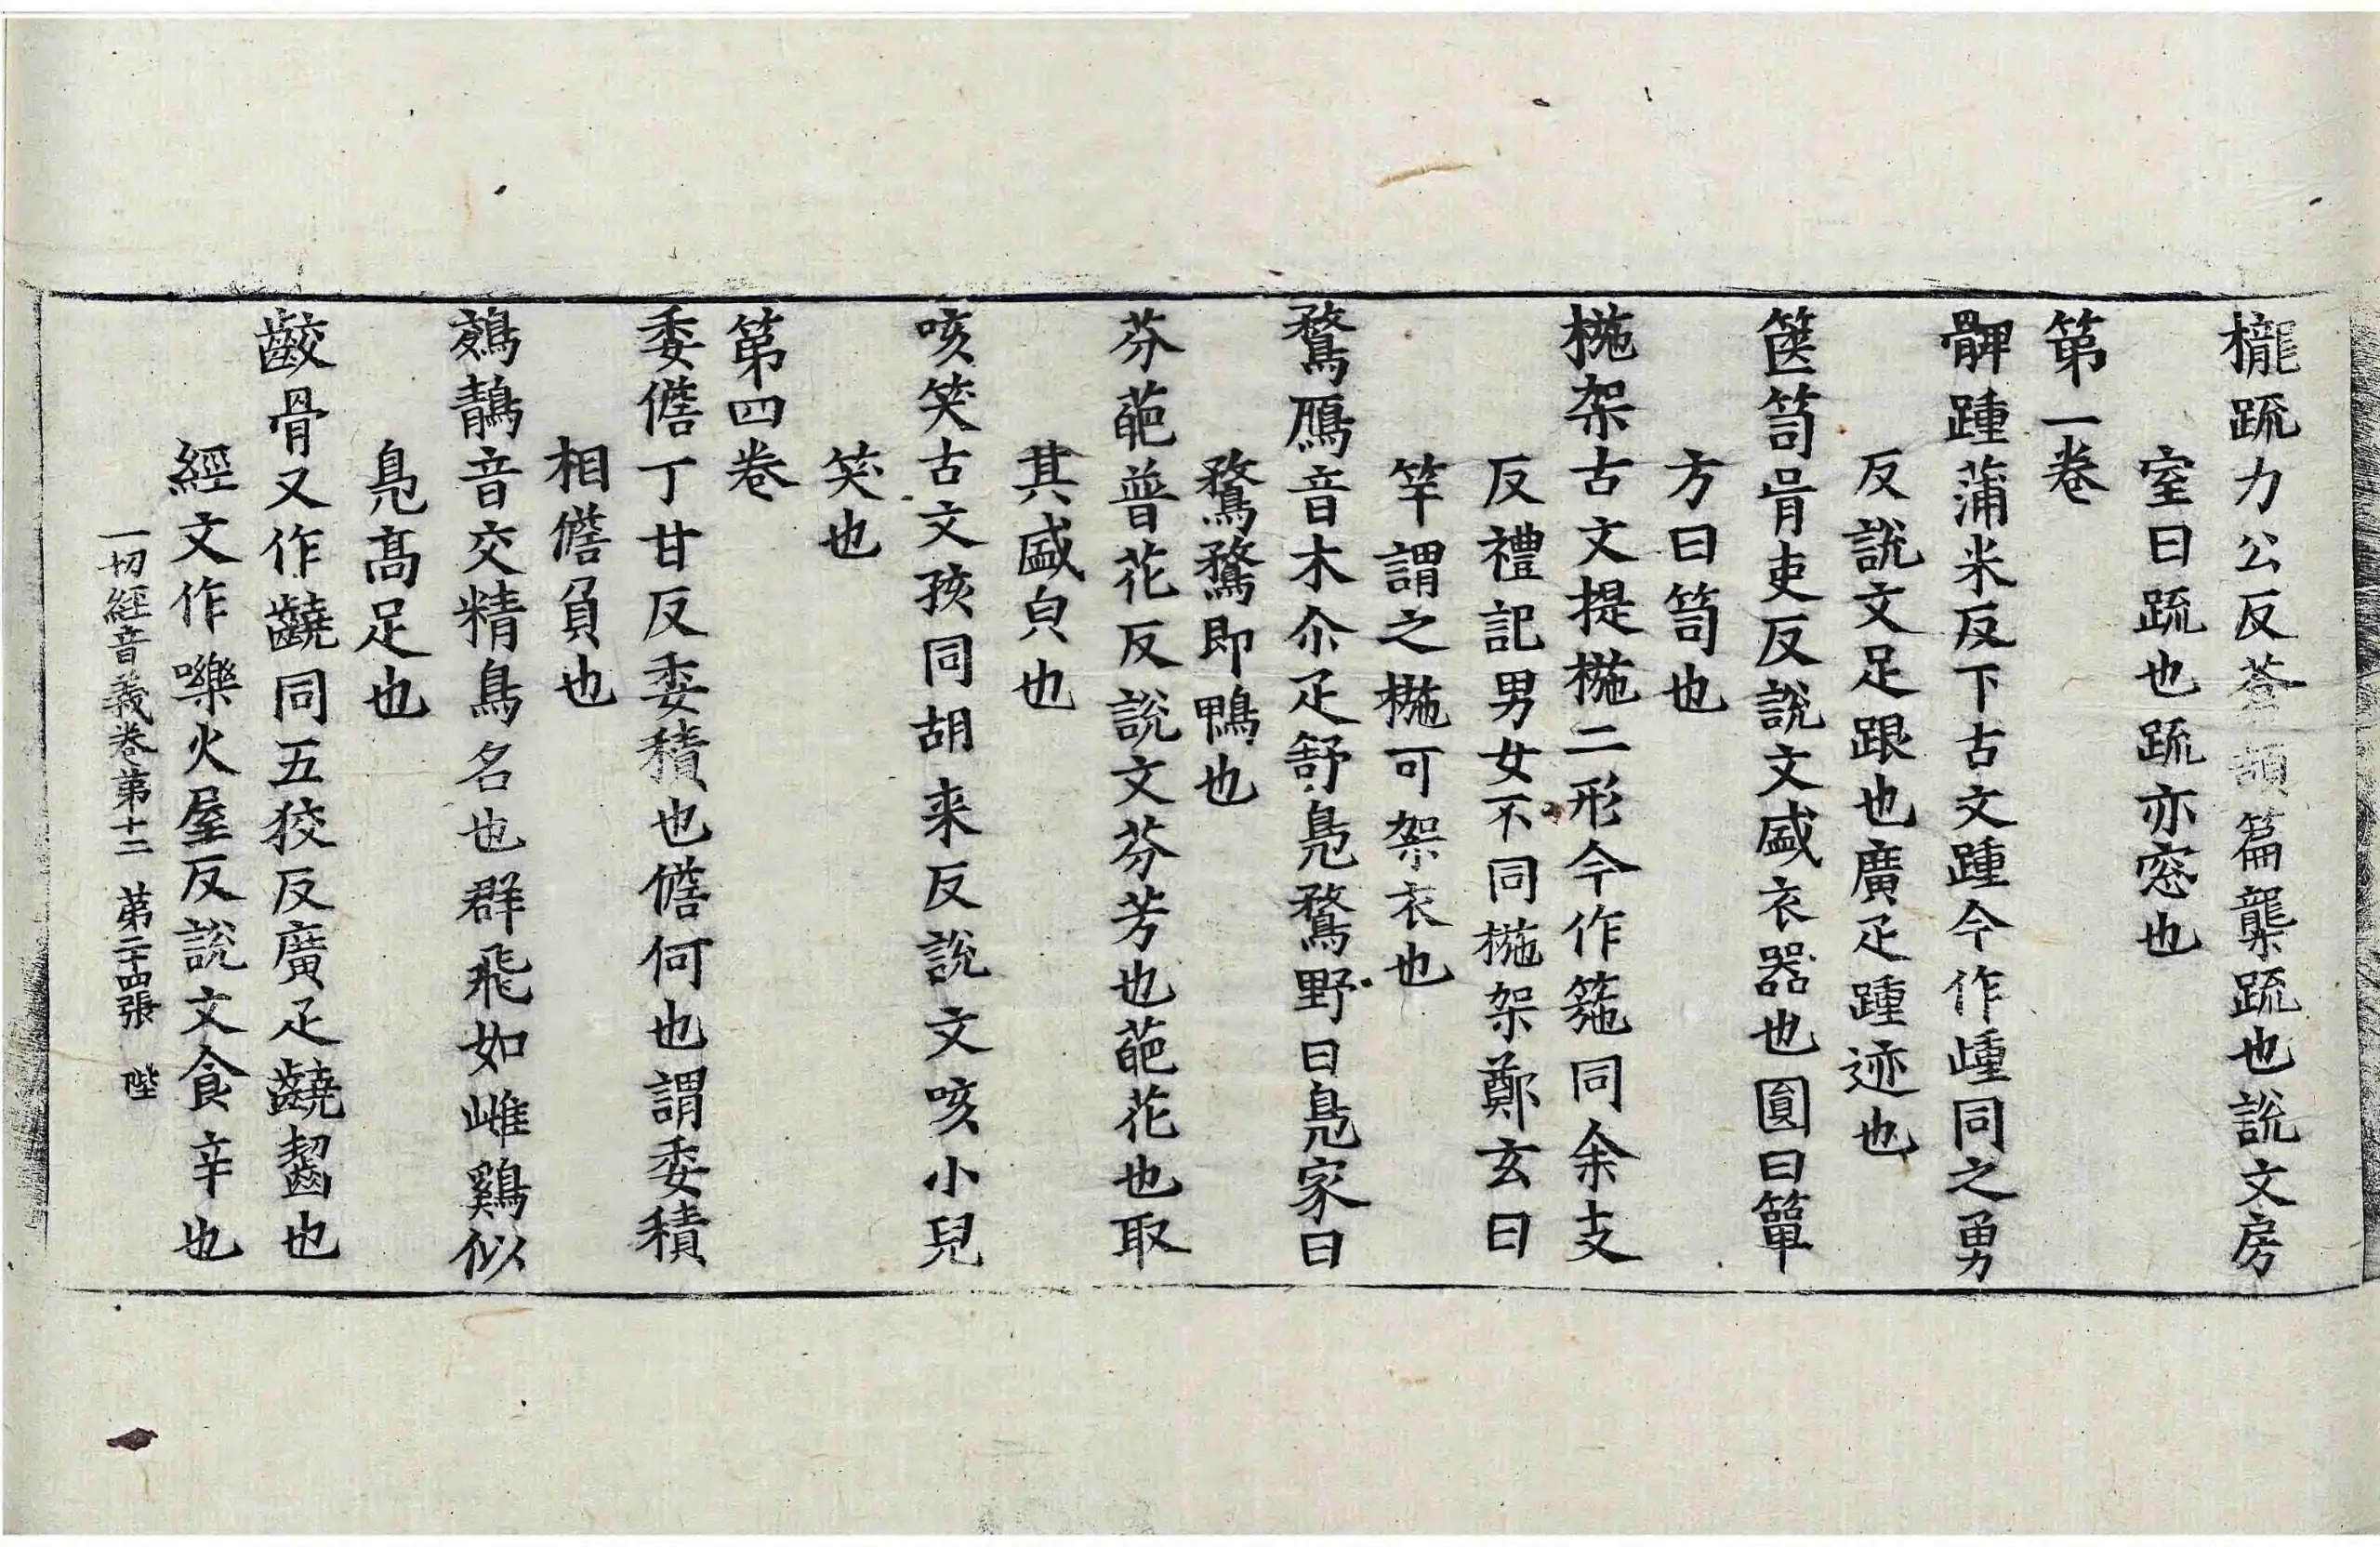 櫳䟽力公反蒼頡篇櫳䟽也說文房
室曰䟽也䟽亦窓也
第一卷
髀踵蒲米反下古文踵今作歱同之勇
反說文足跟也廣疋踵迹也
篋笥胥吏反說文盛衣器也圓曰簞
方曰笥也
椸架古文提椸二形今作箷同余支
反禮記男女不同椸架鄭玄曰
竿謂之椸可架衣也
鶩鴈音木尒疋舒鳧鶩野曰鳧家曰
鶩鶩即鴨也
芬葩普花反說文芬芳也葩花也取
其盛皃也
咳笑古文孩同胡来反說文咳小兒
笑也
第四卷
委儋丁甘反委積也儋何也謂委積
相儋負也
鵁鶄音交精鳥名也群飛如雌鷄似
鳧高足也
齩骨又作齾同五狡反廣疋齾齧也
經文作㗱火屋反說文食辛也
一切經音義卷第十二 第二十四張 陛